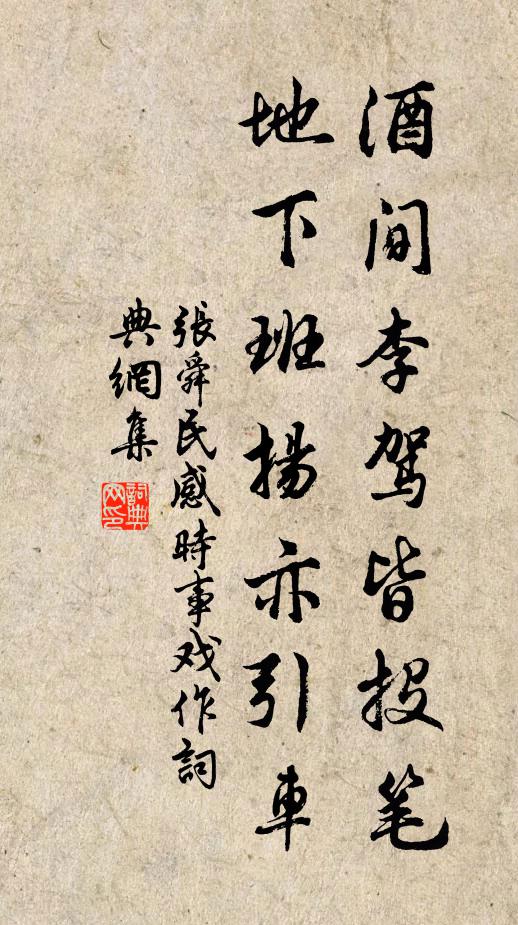 酒间李驾皆投笔
地下班揚亦引車
張舜民感時事戏作詞
典網集
詞典网印